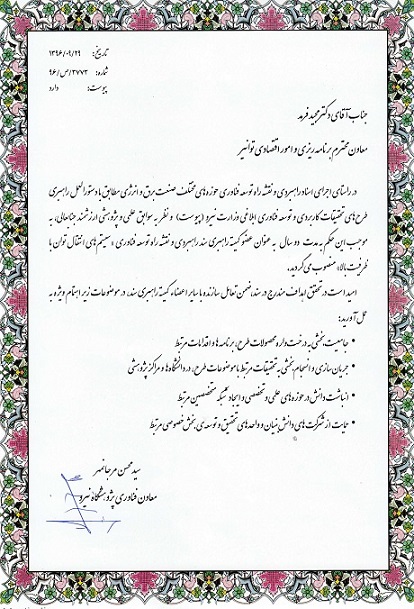 تاریخ: ۱۳۹۶/۰۹/۲۹
شماره: ۹۶/ص/۳۷۷۳
پیوست: دارد
جناب آقای دکتر مجید فرد
معاون محترم برنامه ریزی و امور اقتصادی توانیر
در راستای اجرای اسناد راهبردی و نقشه راه توسعه فناوری حوزه های مختلف صنعت برق و انرژی مطابق با دستورالعمل راهبری
طرح های تحقیقات کاربردی و توسعه فناوری ابلاغی وزارت نیرو (پیوست) و نظر به سوابق علمی و پژوهشی ارزشمند جنابعالی، به
موجب این حکم به مدت دو سال به عنوان عضو کمیته راهبری سند راهبردی و نقشه راه توسعه فناوری « سیستم های انتقال توان با
ظرفیت بالا» منصوب می گردید.
امید است در تحقق اهداف مندرج در سند، ضمن تعامل سازنده با سایر اعضاء کمیته راهبری سند، در موضوعات زیر اهتمام ویژه به
عمل آورید:
• جامعیت بخشی به درخت واره محصولات طرح، برنامه ها و اقدامات مرتبط
• جریان سازی و انسجام بخشی به تحقیقات مرتبط با موضوعات طرح، در دانشگاه ها و مراکز پژوهشی
• انباشت دانش در حوزه های علمی و تخصصی و ایجاد شبکه متخصصین مرتبط
• حمایت از شرکت های دانش بنیان و واحدهای تحقیق و توسعه ی بخش خصوصی مرتبط
سید محسن مرجانمهر
معاون فناوری پژوهشگاه نیرو